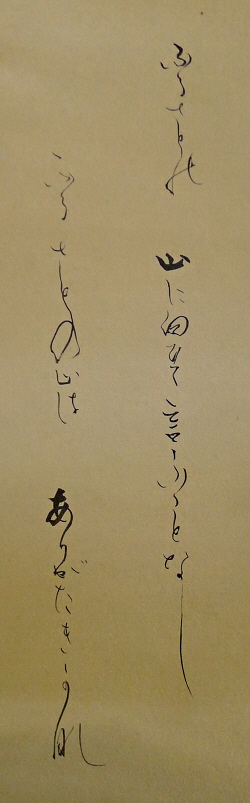 ふるさとの 山に向ひて 言ふことなし
ふるさとの山は ありがたきかな